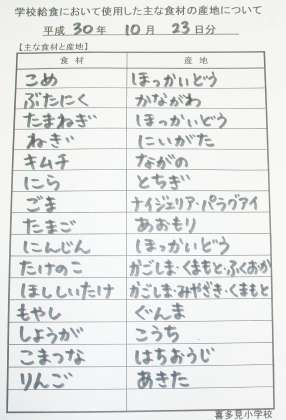 学校給食において使用した主な食材の産地について
平成 30 年 10 月 23 日分
【主な食材と産地】
食材 産地
こめ ほっかいどう
ぶたにく かながわ
たまねぎ ほっかいどう
ねぎ にいがた
キムチ ながの
にら とちぎ
ごま ナイジェリア・パラグアイ
たまご あおもり
にんじん ほっかいどう
たけのこ かごしま・くまもと・ふくおか
ほししいたけ かごしま・みやざき・くまもと
もやし ぐんま
しょうが こうち
こまつな はちおうじ
りんご あきた
喜多見小学校